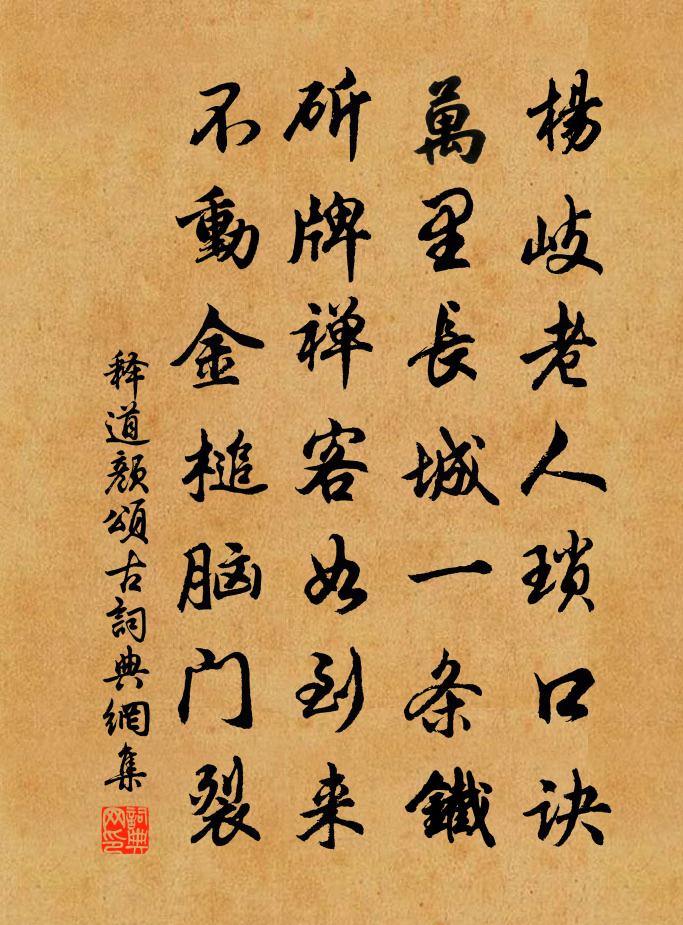 楊岐老人瑣口訣
萬里長城一条鐵
斫牌禅客如到来
不動金槌脑门裂
释道颜頌古詞典網集
詞典网印